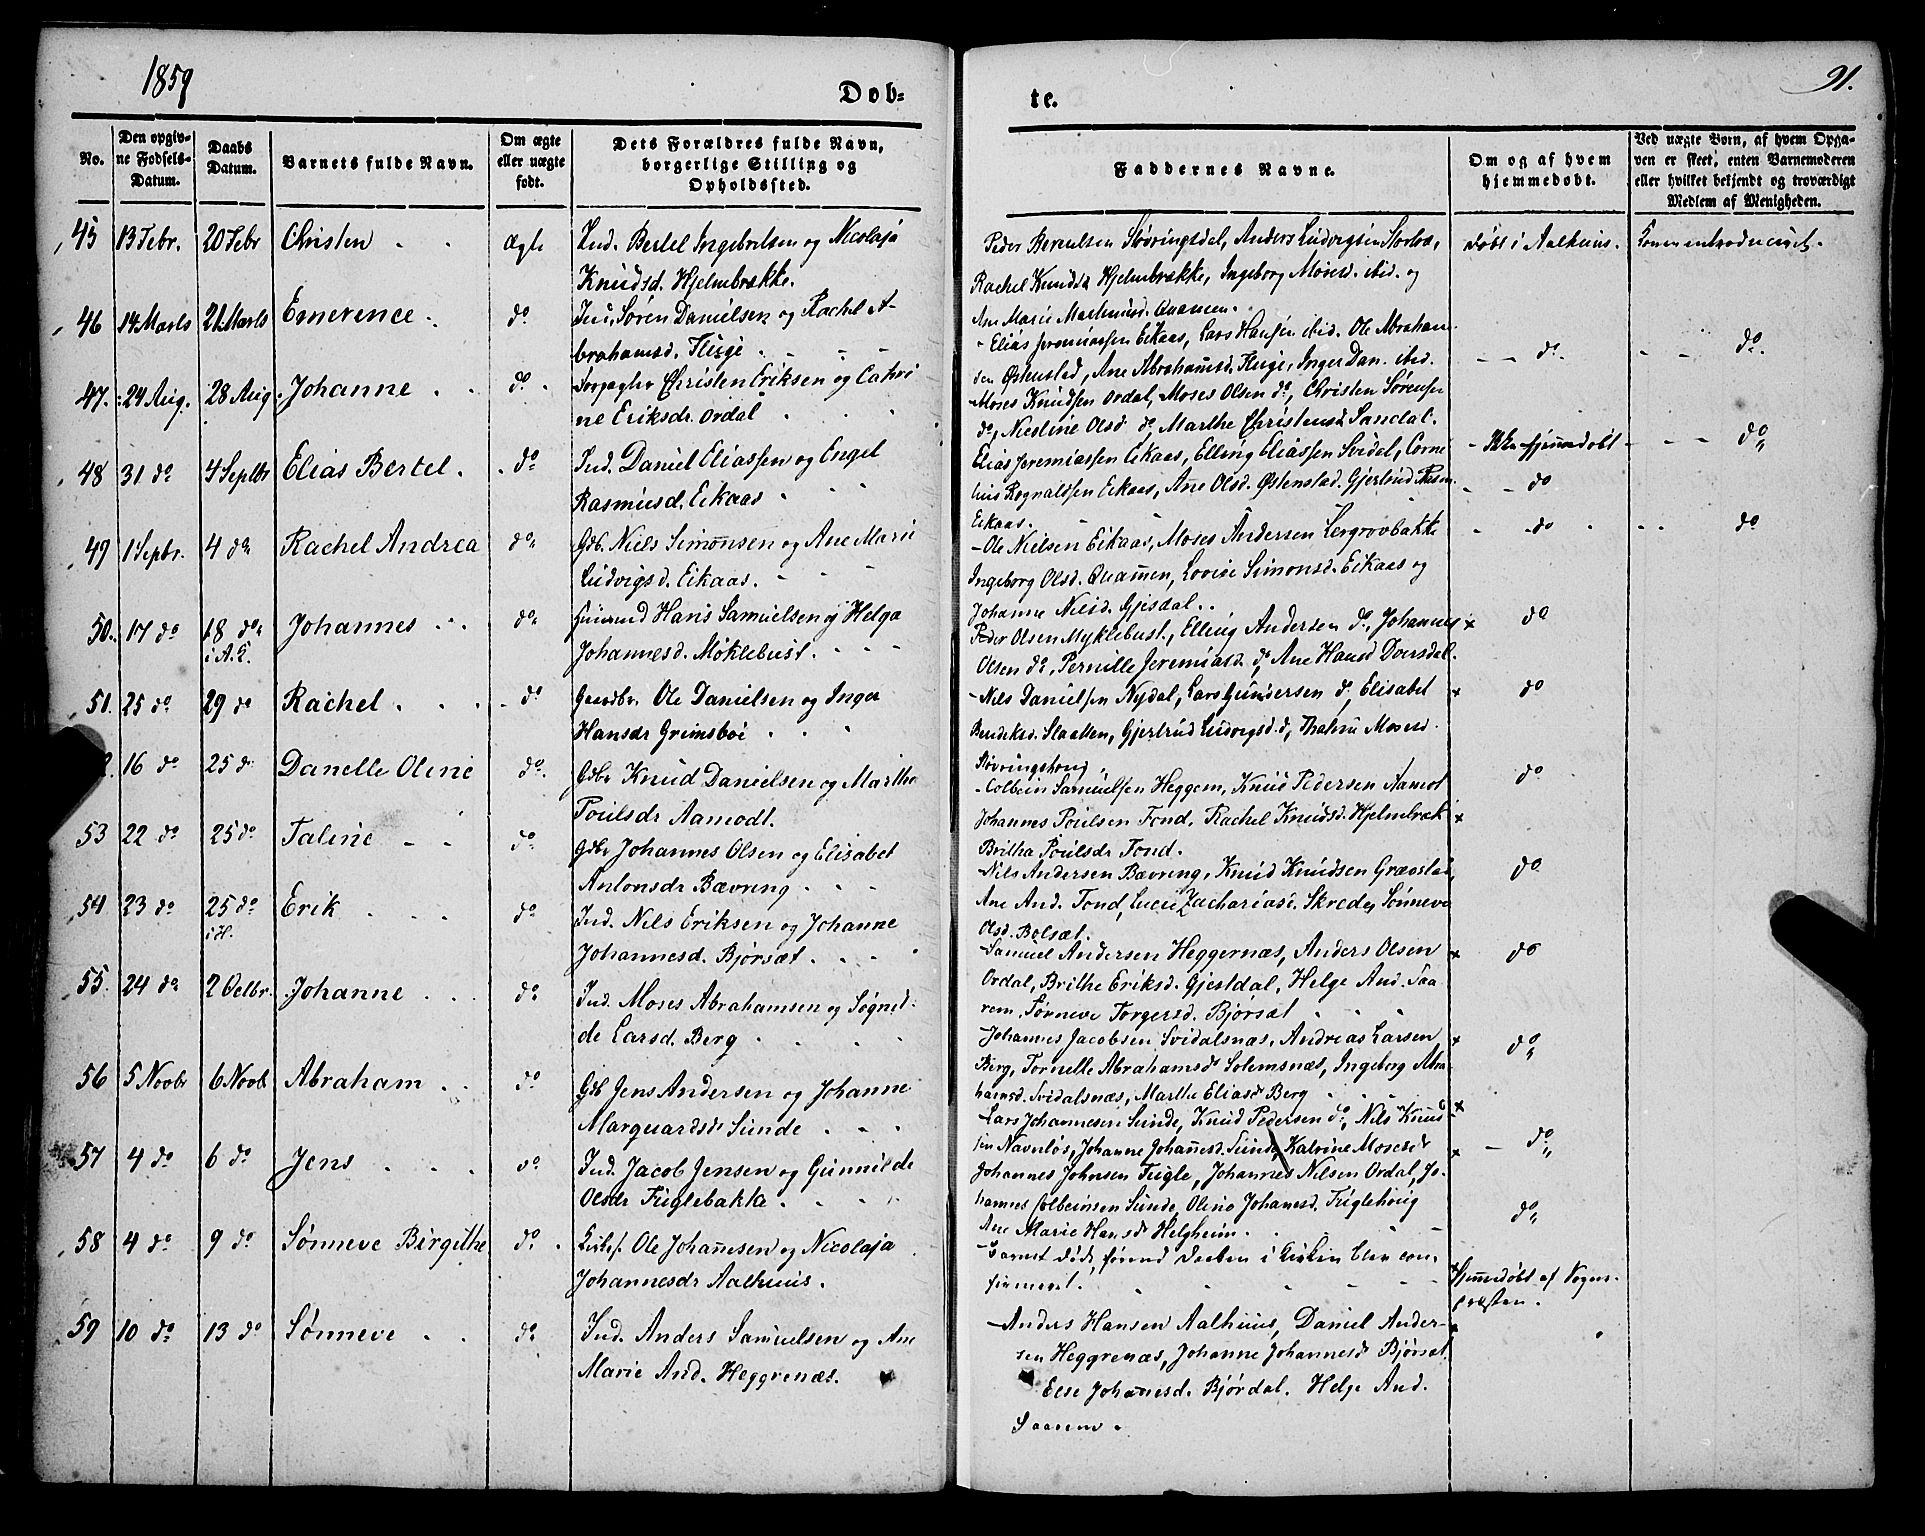 1859
Dob=
te.
91.
No.
Den opgiv=
ne Fodsels=
Datum.
Daabs
Datum.
Barnets fulde Navn.
Om ægte
eller uægte
født.
Dets Forældres fulde Navn,
borgerlige Stilling og
Opholdssted.
Faddernes Navne.
Om og af hvem
hjemmedobt.
Ved uægte Born, af hvem Opga=
ven er skeet, enten Barnemoderen
eller hvilket bekjendt og troværdigt
Medlem af Menigheden.
45 13 Febr. 20 Febr Christen ægte Ind. Bertel Ingebrigtsen og Nicolaja
Knudsd. Hjelmbrekke.
Anders Ludvigsen
Rachel Knudsd. Hjelmbrække, Ingeborg Mosesd. ibid. og
Ane Marie Quamen.
døbt i Aalhuus. Konen introduceret.
46 14 Marts 21 Marts Emerence do Ind. Søren Danielsen og Rachel A-
brahamsd. Fluge
Elias Jeremiassen Eikaas, Lars Hansen ibid. Ole Abraham
Ane Abrahamsd. Fluge, Inger Dan. ibid.
do. do.
47. 24 Aug. 28 Aug. Johanne do. Christen Eriksen og Cathri
ne Eriksdr. Ordal
Moses Knudsen Ordal, Moses Olsen do, Christen Sørensen
do, Nicoline Olsd. do, Marthe Christensd. Sandal.
Ikke hjemmedøbt do
48 31 do 4 Septbr Elias Bertel. do Ind. Daniel Eliassen og Engel
Rasmusd. Eikaas
Elias Jeremiassen Eikaas, Elling Eliassen Svidal, Corne
lius Rognaldsen Eikaas, Ane Olsd. Østenstad. Gjertrud Rasm.
Eikaas.
do
49 1 Sepbr. 4 do Rachel Andrea do Gdb. Niels Simonsen og Ane Marie
Ludvigsd. Eikaas.
Ole Nielsen Eikaas, Moses Andersen
Ingeborg Olsd. Quamen, Lovise Simonsd. Eikaas og
Johanne Nilsd. Gjesdal.
do do
50. 17 do 18 do Johannes do Hans Samuelsen og Helga
i A. K.
Johannesd. Møklebust.
Peder Olsen Myklebust, Elling Andersen do, Johannes
Olsen do, Pernille Jeremiasd. do, Ane Hansd
do
51. 25 do 29 do Rachel do Ole Danielsen og Inger
Hansdr Grimsbøi
Nils Danielsen Nydal, Lars Gundersen do, Elisabet
Bendiksd. Slaatten, Gjertrud Ludvigsd. do, Mosesd.
Støvringshoug,
do
16 do 25 do Danelle Oline do. Gdbr. Knud Danielsen og Marthe
Poulsdr Aamodt.
Colbein Samuelsen Heggem, Knud Pedersen Aamot
Johannes Poulsen Fond, Rachel Knudsd. Hjelmbræk
Britha Poulsdr Fond.
do
53 22 do 25 do Taline do Gdbr Johannes Olsen og Elisabet
Antonsdr Bævring
Nils Andersen Bævring, Knud Knudsen
Ane And. Fond, Zachariasd. Skrede, Sønneve
Olsd. Bolsæt.
do
54 23 do 25 do Erik do Ind. Nils Eriksen og Johanne
i H.
Johannesd. Bjørsæt.
Samuel Andersen Heggernæs, Anders Olsen
Ordal, Brithe Eriksd. Gjestdal, Helge And. Saa
rem, Sønneve Torgersd. Bjørsæt
do
55. 24 do 2 Octbr. Johanne do Ind. Moses Abrahamsen og Søgned-
de Larsd. Berg
Johannes Jacobsen Svidalsnæs, Andreas Larsen
Berg, Abrahamsd. Solemsnæs, Ingeborg Abra
hamsd. Svidalsnæs, Marthe Eliasd. Berg
do
56 5 Novbr 6 Novb Abraham do Gdb Jens Andersen og Johanne
Marquardsdr Sunde
Lars Johannesen Sunde, Knud Pedersen do, Nils Knud
sen Navnløs, Johanne Johannesd. Sunde, Katrine Mosesdr
do
57 4 do 6 do Jens do Ind. Jacob Jensen og Gunnilde
Olsdr Fuglebakke.
Johannes Johnsen Fugle, Johannes Nilsen Ordal, Jo-
hannes Colbeinsen Sunde, Oline Johansd. Fuglehoug
Ane Marie Hansdr Helgheim.
do
58 4 do 9 do Sønneve Birgithe do Ole Johannsen og Nicolaja
Johannesdr Aalhuus.
Barnet døde, førend Daaben i Kirken blev con-
firmeret.
Hjemmedøbt af Sogne-
præsten.
59 10 do 13 do Sønneve do Ind. Anders Samuelsen og Ane
Marie And. Heggrenæs.
Anders Hansen Aalhuus, Daniel Ander-
sen Heggrenæs, Johanne Johannesdr Bjørsæt
Else Johansd. Bjørdal. Helge And.
Saarem.